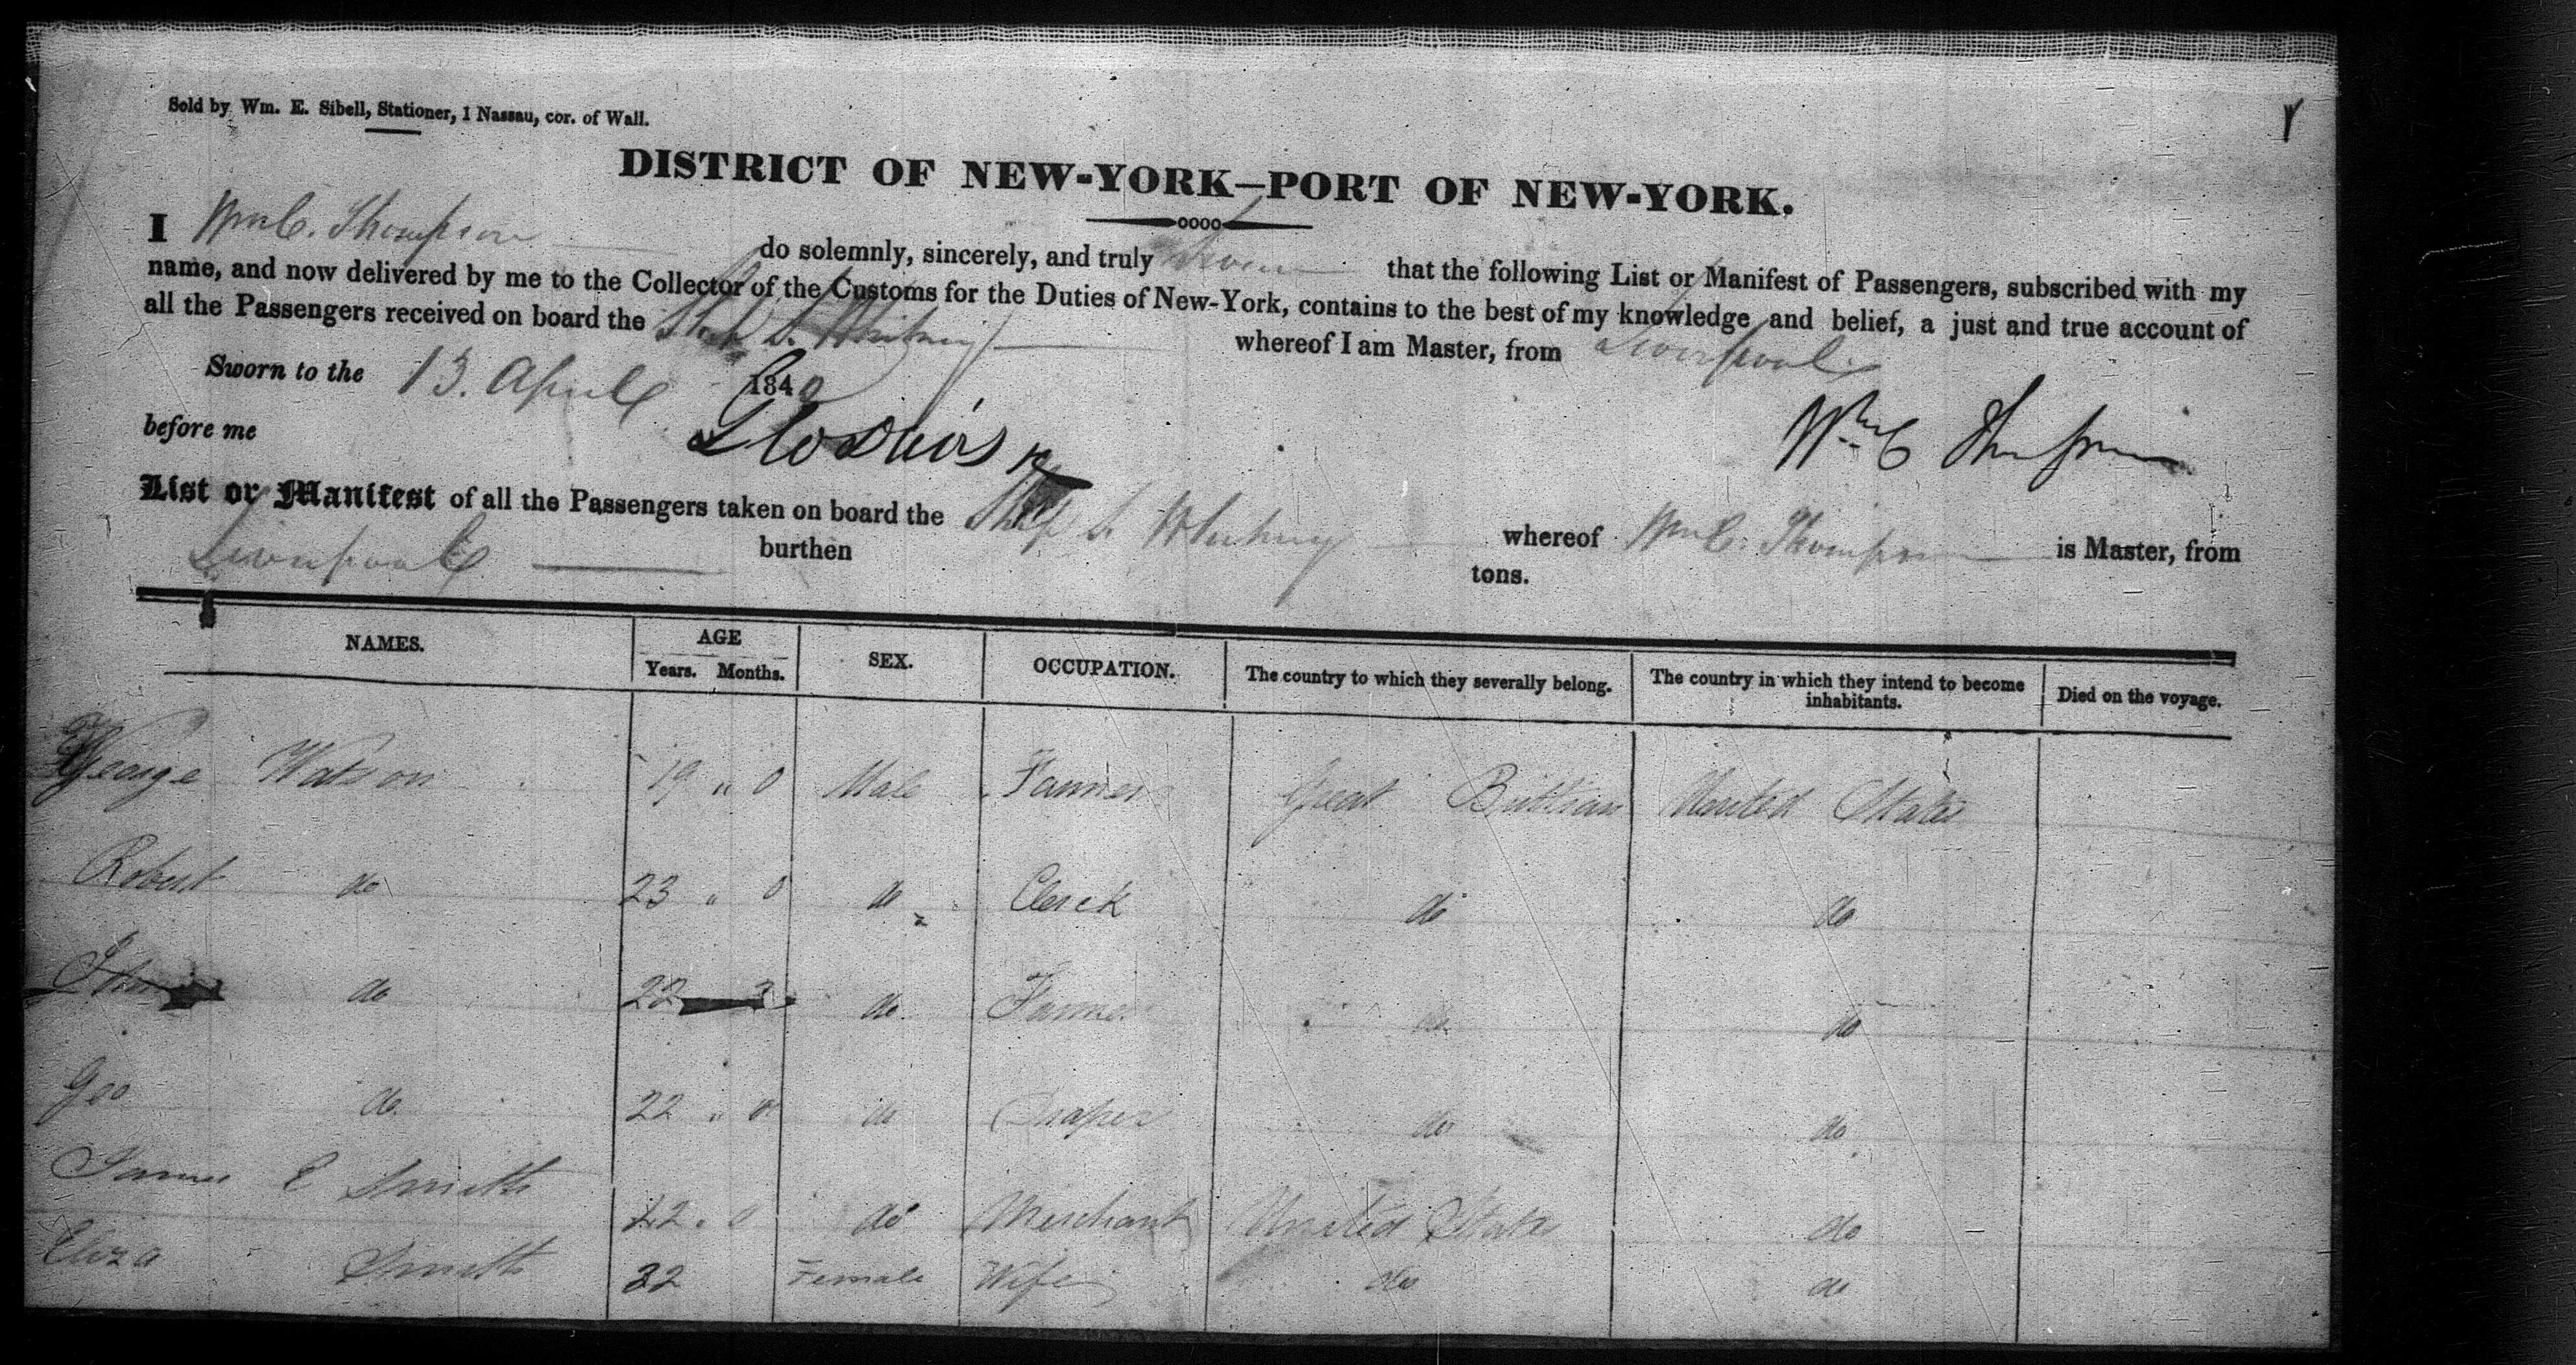 Sold by Wm. E. Sibell, Stationer, 1 Nassau, cor. of Wall.
DISTRICT OF NEW-YORK—PORT OF NEW-YORK.
I Wm C. Thompson do solemnly, sincerely, and truly Swear that the following List or Manifest of Passengers, subscribed with my
name, and now delivered by me to the Collector of the Customs for the Duties of New-York, contains to the best of my knowledge and belief, a just and true account of
all the Passengers received on board the Ship S. Whitney whereof I am Master, from Liverpool
Sworn to the 13. April 1840
before me
Wm C Thompson
List or Manifest of all the Passengers taken on board the Ship S. Whitney whereof Wm C. Thompson is Master, from
Liverpool burthen tons.
NAMES. AGE SEX. OCCUPATION. The country to which they severally belong. The country in which they intend to become inhabitants. Died on the voyage.
Years. Months.
George Watson 19 " 0 Male Farmer Great Brittian United States
Robert do 23 " 0 do Clerck do do
do 22 do Farmer do do
Geo do 22 " 0 do Draper do do
James E Smith 22 " 0 do Merchant United States do
Eliza Smith 22 Female Wife do do